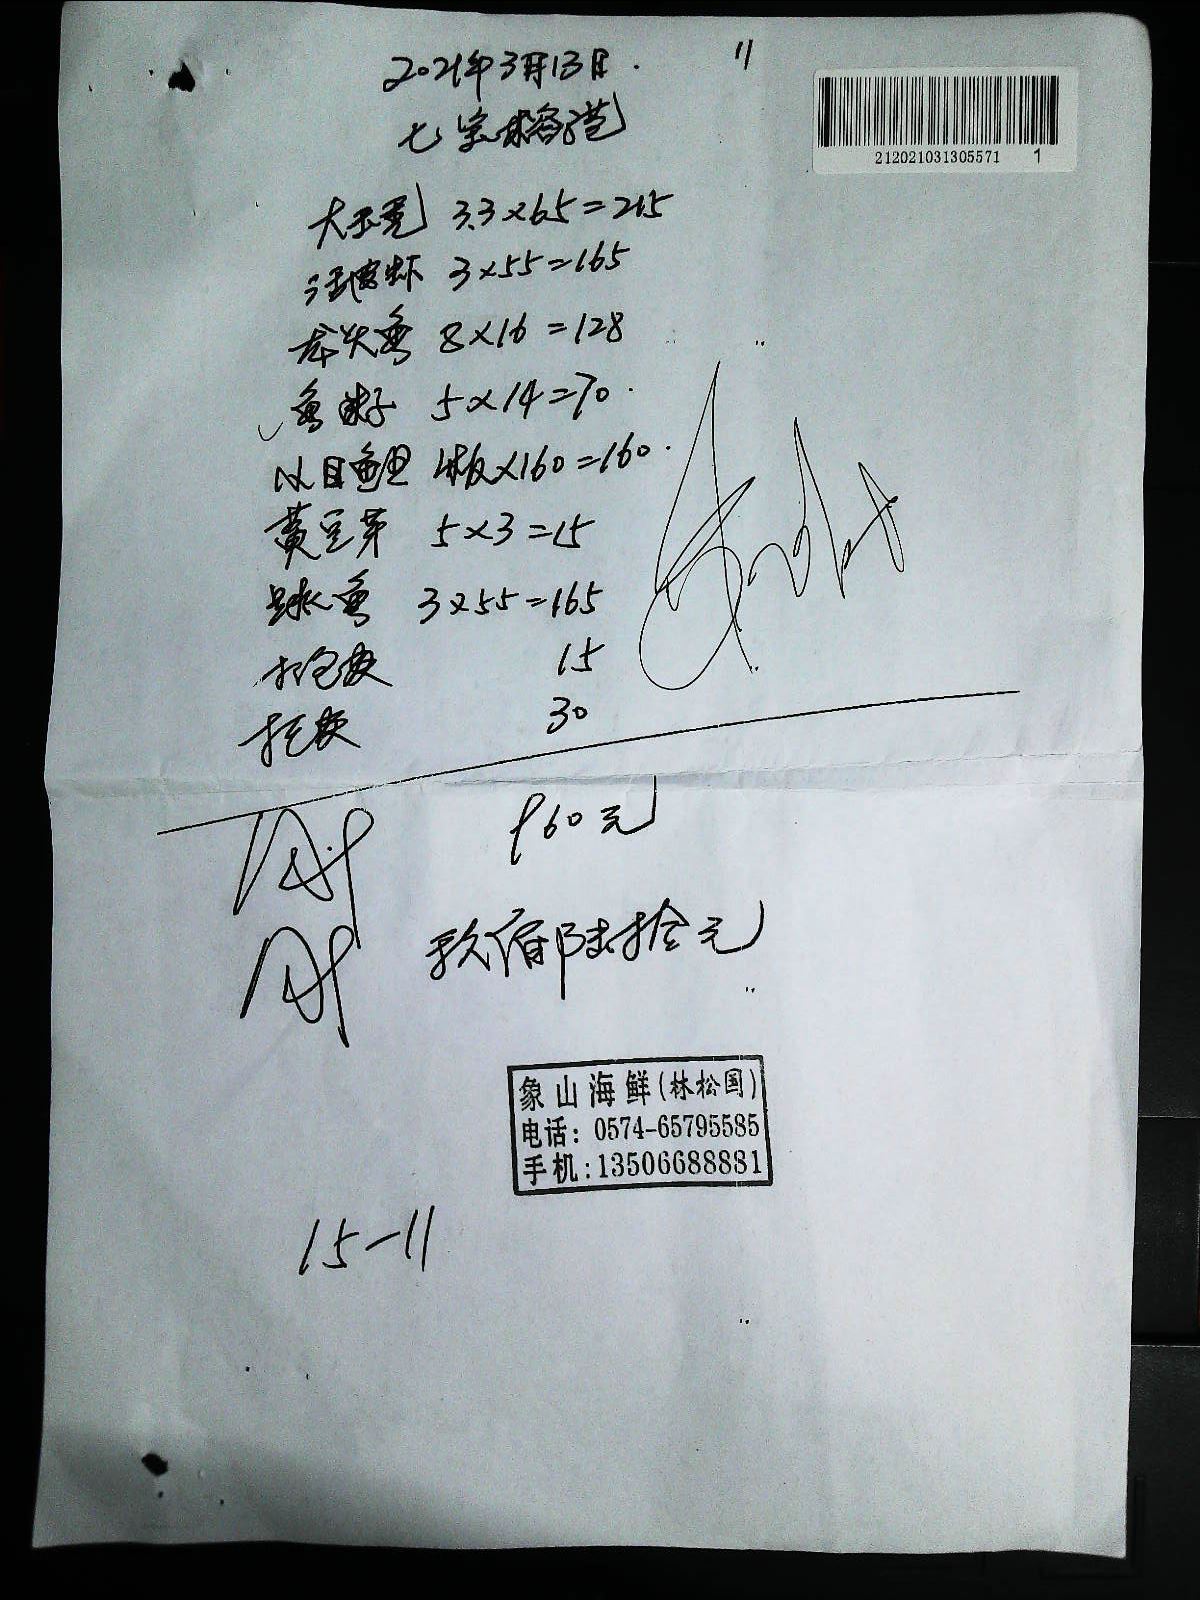 2021年3月13日. 11
212021031305571 1
七宝榕港
大玉秃 3.3×65=215
活皮虾 3×55=165
龙头鱼 8×16=128
鱼 5×14=70.
以目鲳 1板×160=160.
黄豆芽 5×3=15
鱼 3×55=165
打包费 15
托费 30
960元
玖佰陆拾元
象山海鲜(林松国)
电话: 0574-65795585
手机:13506688881
15-11